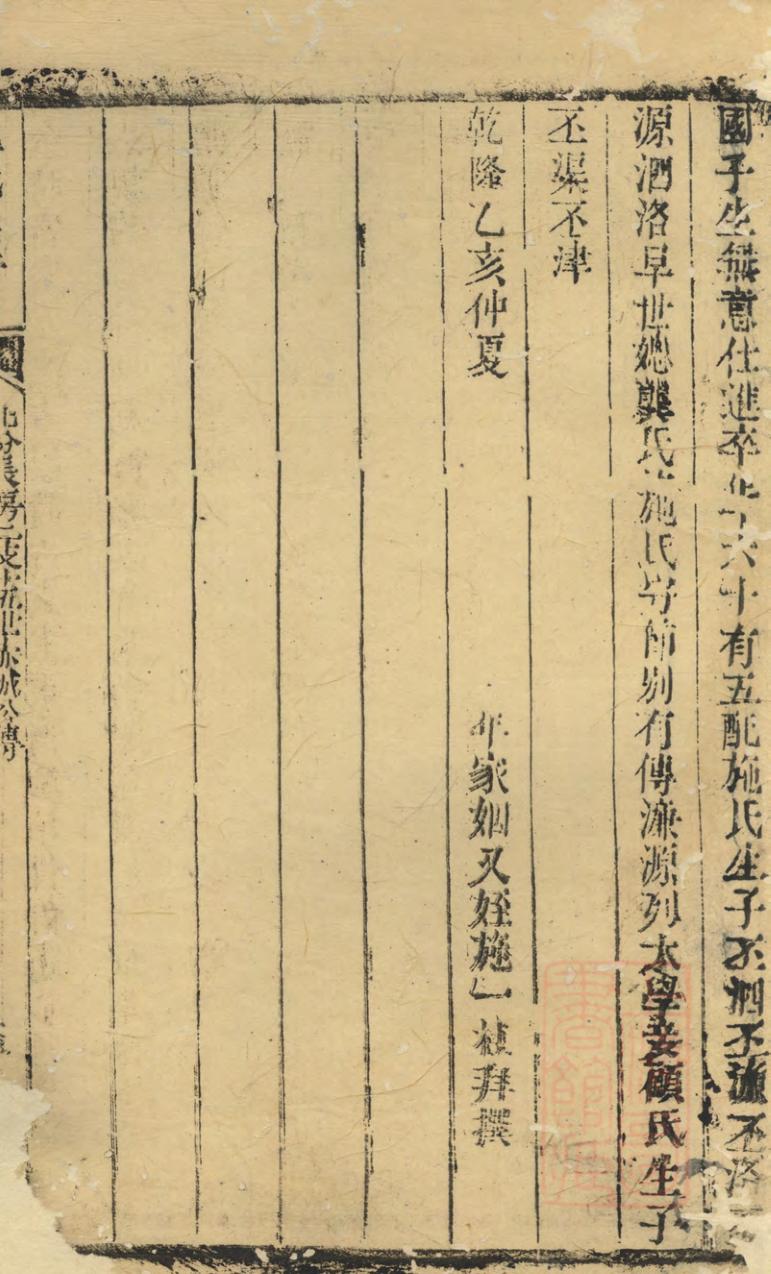 國子生無意仕進卒年六十有五配施氏生子丕泗丕濂丕洛丕
源泗洛早世媳龔氏施氏守節別有傳濂源列太學妾顧氏生子
丕渠丕津
乾隆乙亥仲夏
年家姻又姪施一 拜撰
北分長房之支十五世 城公傳